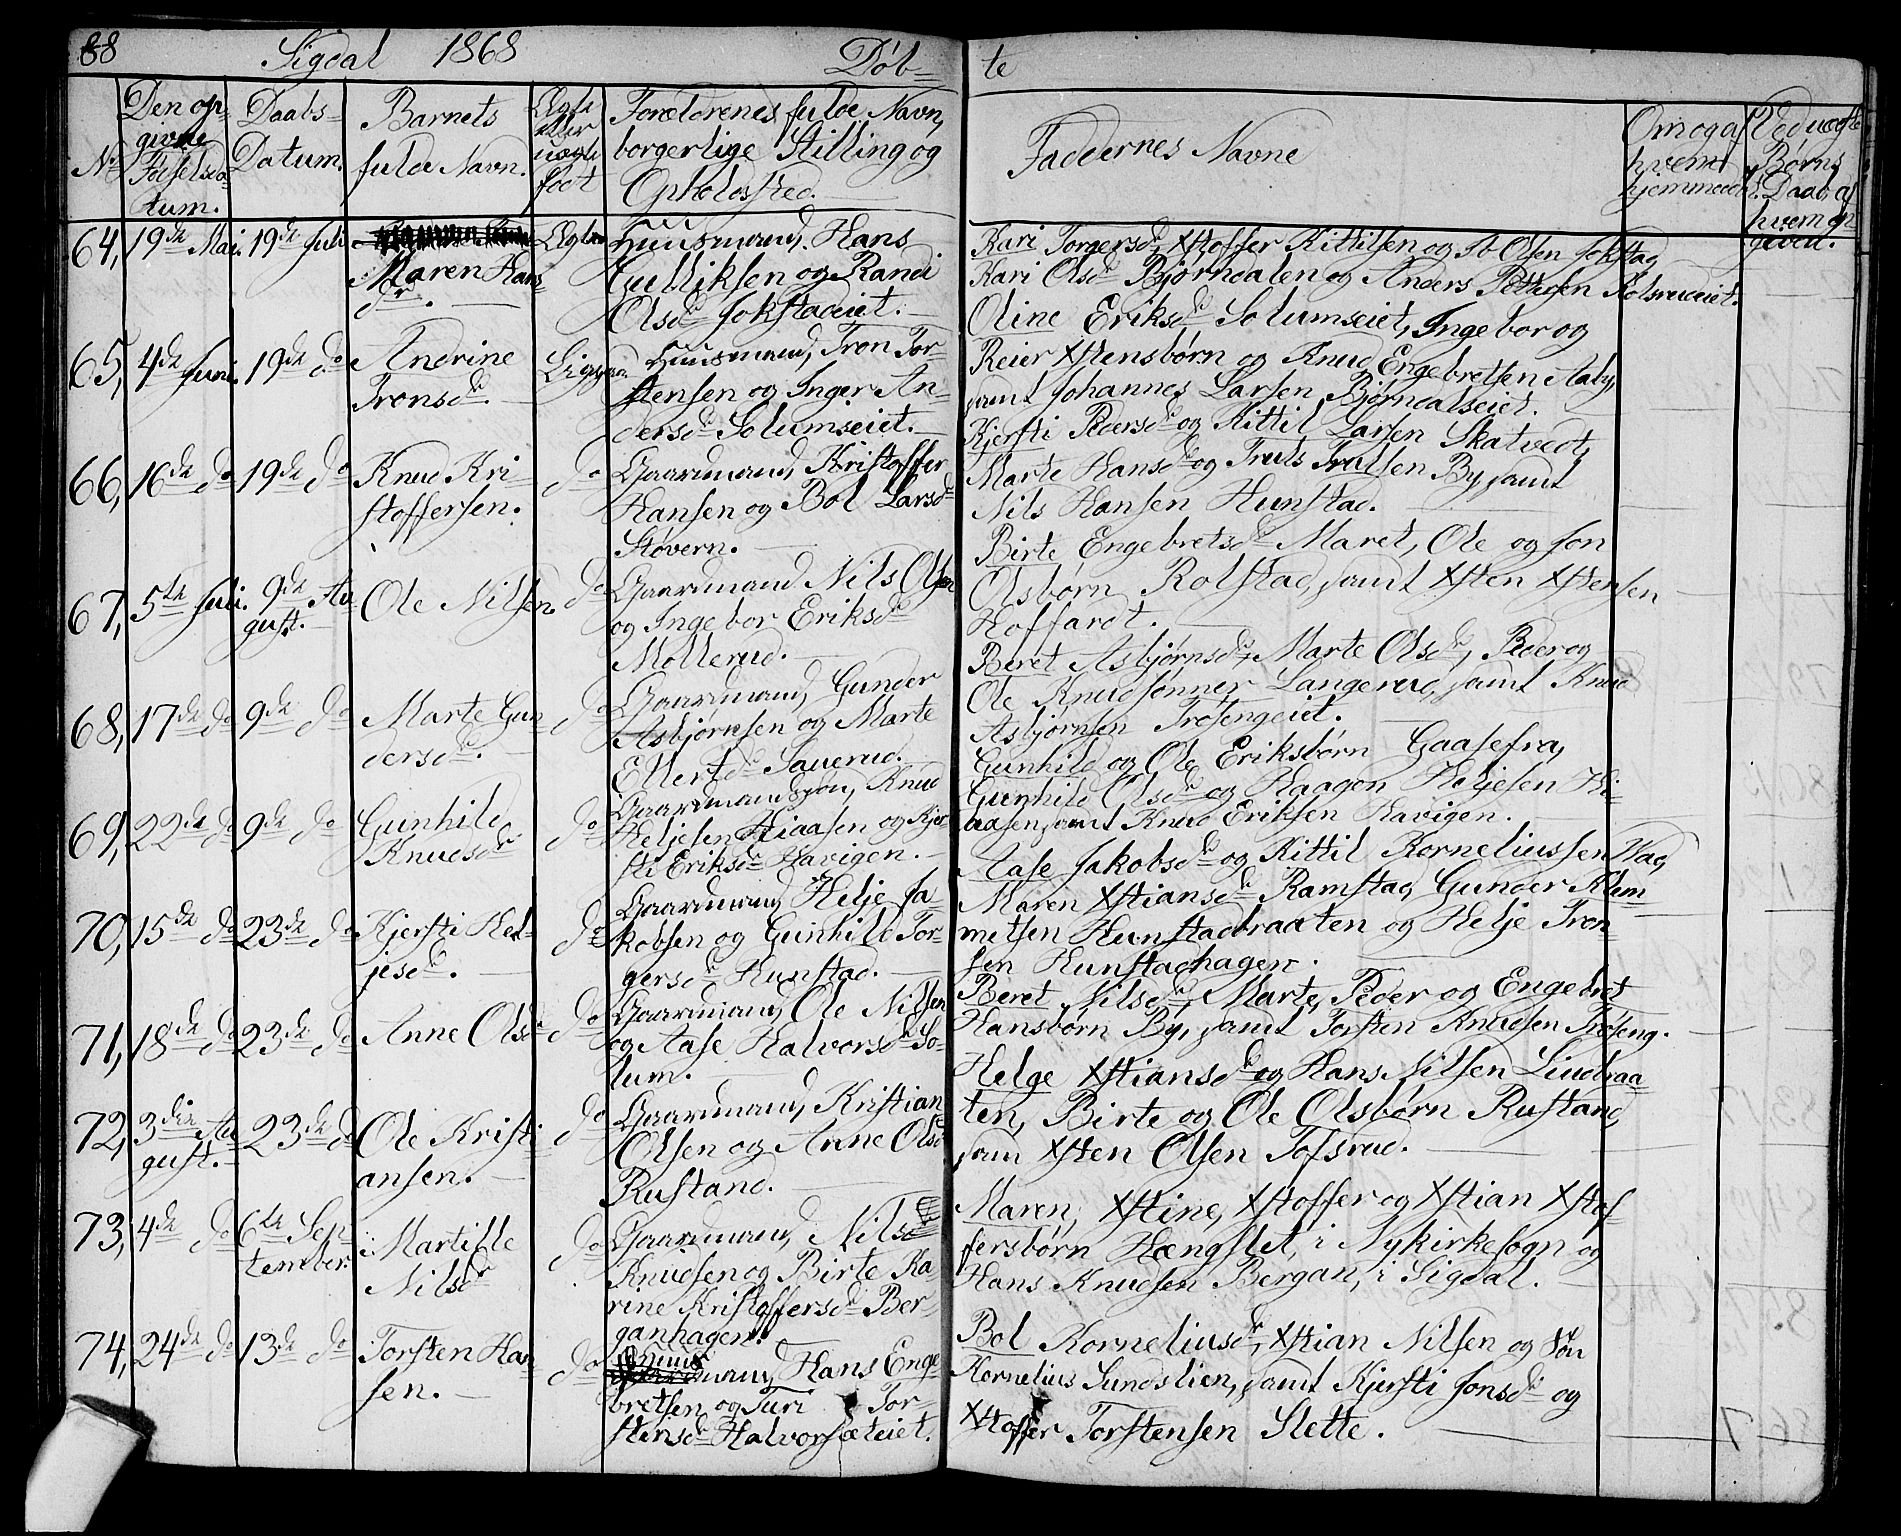 88 Sigdal 1868 Døb= te
No
Den op-
givne
Fødselsda-
tum.
Daabs-
Datum.
Barnets
fulde Navn.
Ægte
eller
uægte
født
Forældrenes fulde Navn,
borgerlige Stilling og
Opholdssted.
Faddernes Navne
Om og af
hvem
hjemmedøbt.
Ved uægte
Børns
Daab, af
hvem op-
given.
64, 19de Mai. 19de Juli
Maren Hans
dr.
Ægte
Huusmand, Hans
Gulliksen og Randi
Olsdr Jokstadeiet.
Kari Torgersdr, Xstoffer Kittilsen og Olsen Jokstad,
Kari Olsdr Bjørndalen og Anders Pettersen Kolsrudeiet.
65, 4de Juni. 19de do
Andrine
Tronsdr.
Ligesaa.
Huusmand, Tron Tor-
stensen og Inger An-
dersdr Solumseiet.
Oline Eriksdr Solumseiet, Ingebor og
Reier Xstensbørn og Knud Engebretsen Aaby,
samt Johannes Larsen Bjørndalseiet.
66, 16de do 19de do
Knud Kri-
stoffersen.
do
Gaardmand, Kristoffer
Hansen og Bol Larsdr
Støvern.
Kjersti Pedersdr og Kittil Larsen Skatvedt,
Marte Hansdr og Truls Trulsen By, samt
Nils Hansen Hunstad.
67, 5te Juli. 9de Au-
gust.
Ole Nilsen
do
Gaardmand Nils Olsen
og Ingebor Eriksdr
Møllerud.
Birte Engebretsdr Maret, Ole og Jon
Olsbørn Rolstad, samt Xsten Xstensen
Hoffardt.
68, 17de do 9de do
Marte Gun
dersdr.
do
Gaardmand, Gunder
Asbjørnsen og Marte
Ellertsdr Sauerud.
Beret Asbjørnsdr, Marte Olsdr, Peder og
Ole Knudsønner Langerud, samt Knud
Asbjørnsen Trøsengeiet.
69, 22de do 9de do
Gunhild
Knudsdr
do
Gaardmandssøn, Knud
Heljesen Hiaasen og Kjer-
sti Eriksdr Havigen.
Gunhild og Ole Eriksbørn Gaasefra,
Gunhild Olsdr og Haagen Heljesen Hi-
aasen, samt Knud Eriksen Havigen.
70, 15de do 23de do
Kjersti Hel-
jesdr.
do
Gaardmand, Helje Ja-
kobsen og Gunhild Tor-
gersdr Hunstad.
Aase Jakobsdr og Kittil Korneliussen Wad,
Maren Xstiansdr Ramstad, Gunder Klem-
metsen Hunstadbraaten og Helje Tron-
sen Hunstadhagen.
71, 18de do 23de do
Anne Olsdr
do
Gaardmand, Ole Nilsen
og Aase Halvorsdr So-
lum.
Beret Nilsdr, Marte, Peder og Engebret
Hansbørn By, samt Torsten Knudsen Trøseng.
72, 3die Au-
gust. 23de do
Ole Kristi-
ansen.
do
Gaardmand, Kristian
Olsen og Anne Olsdr
Rustand.
Helge Xstiansdr og Hans Nilsen Lindbraa-
ten, Birte og Ole Olsbørn Rustand,
samt Xsten Olsen Tofsrud.
73, 4de do 6te Sep-
tember.
Martille
Nilsdr
do
Gaardmand, Nils
Knudsen og Birte Ka-
rine Kristoffersdr Ber-
ganhagen.
Maren, Xstine, Xstoffer og Xstian Xstof-
fersbørn Hængslet, i Nykirkesogn og
Hans Knudsen Bergan, i Sigdal.
74, 24de do 13de do
Torsten Han
sen.
do
Huus
mand, Hans Enge-
bretsen og Turi Tor-
stensdr Halvorsæteiet.
Bol Korneliusdr, Xstian Nilsen og Jon
Kornelius Sundslien, samt Kjersti Jonsdr og
Xstoffer Torstensen Slette.